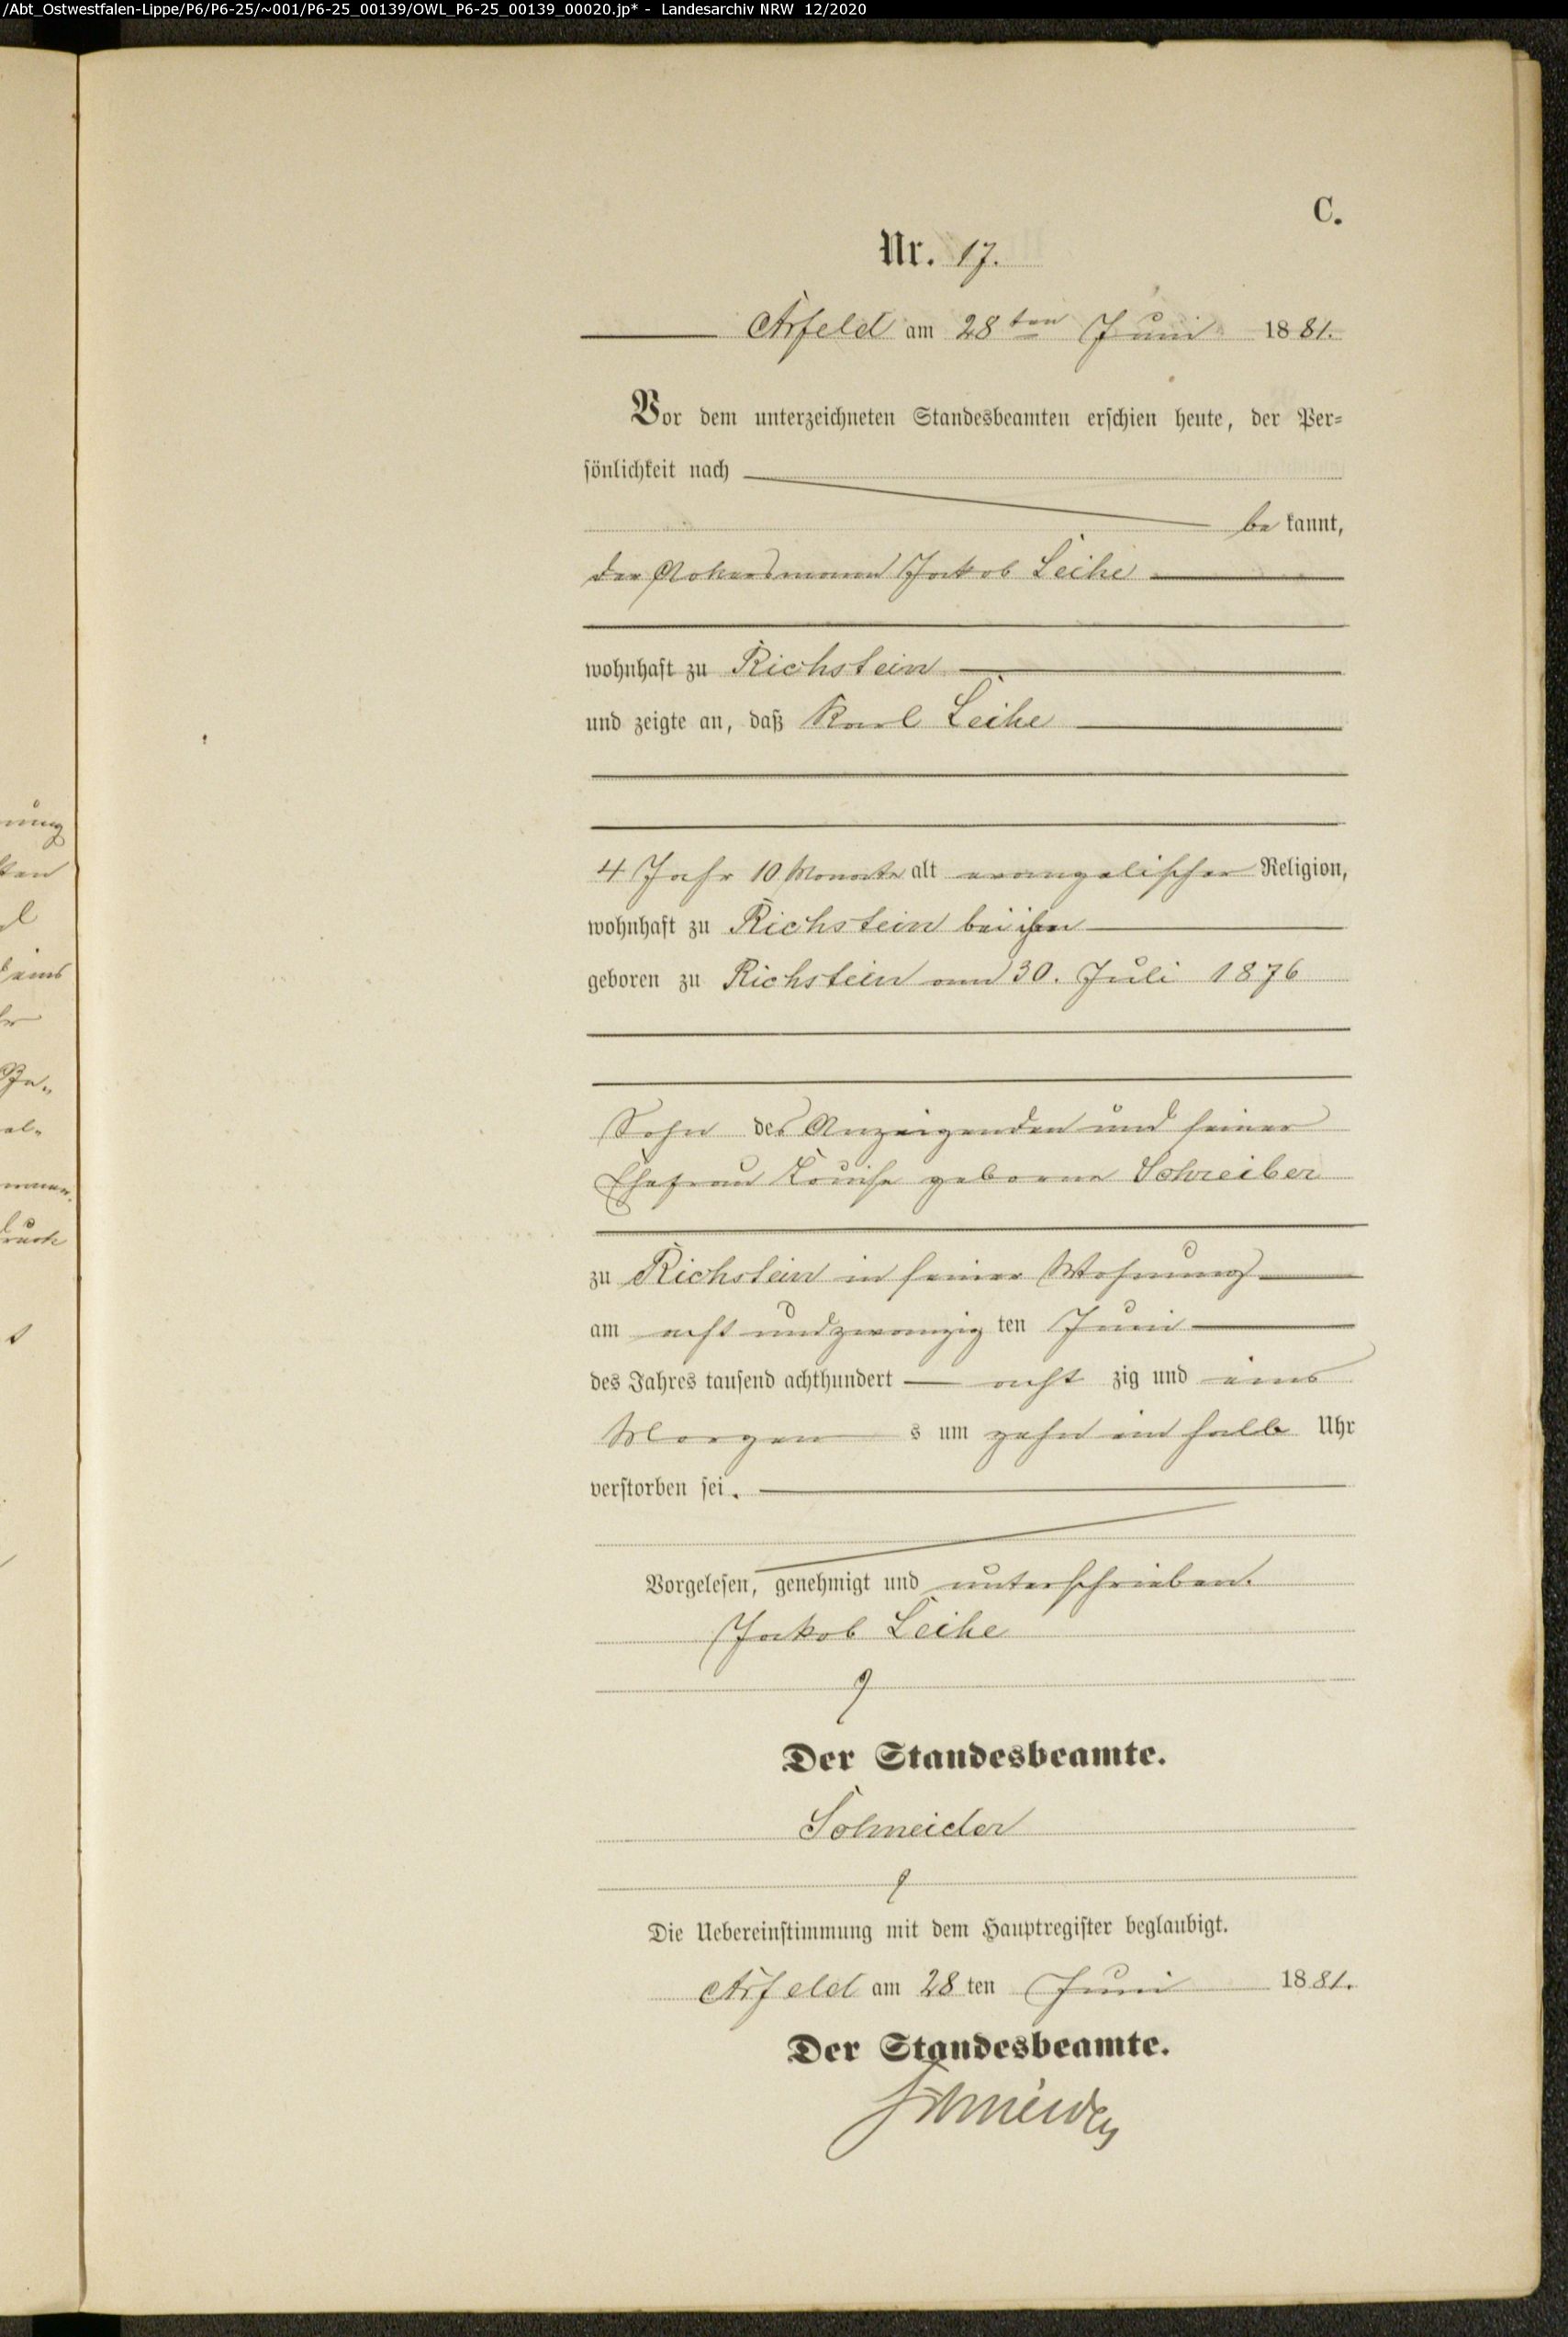 /Abt_Ostwestfalen-Lippe/P6/P6-25/~001/P6-25_00139/OWL_P6-25_00139_00020.jp* - Landesarchiv NRW 12/2020
C.
Nr. 17.
Arfeld am 28ten Juni 1881.
Vor dem unterzeichneten Standesbeamten erschien heute, der Per-
sönlichkeit nach
be kannt,
der Ackersmann Jakob Leihe
wohnhaft zu Richstein
und zeigte an, daß Karl Leihe
4 Jahr 10 Monate alt evangelischer Religion,
wohnhaft zu Richstein bei ihm
geboren zu Richstein am 30. Juli 1876
Sohn des Anzeigenden und seiner
Ehefrau Louise geborne Schreiber
zu Richstein in seiner Wohnung
am acht und zwanzig ten Juni
des Jahres tausend achthundert acht zig und eins
Morgen s um zehn ein halb Uhr
verstorben sei.
Vorgelesen, genehmigt und unterschrieben.
Jakob Leihe
Der Standesbeamte.
Schneider
Die Uebereinstimmung mit dem Hauptregister beglaubigt.
Arfeld am 28 ten Juni 1881.
Der Standesbeamte.
Schneider